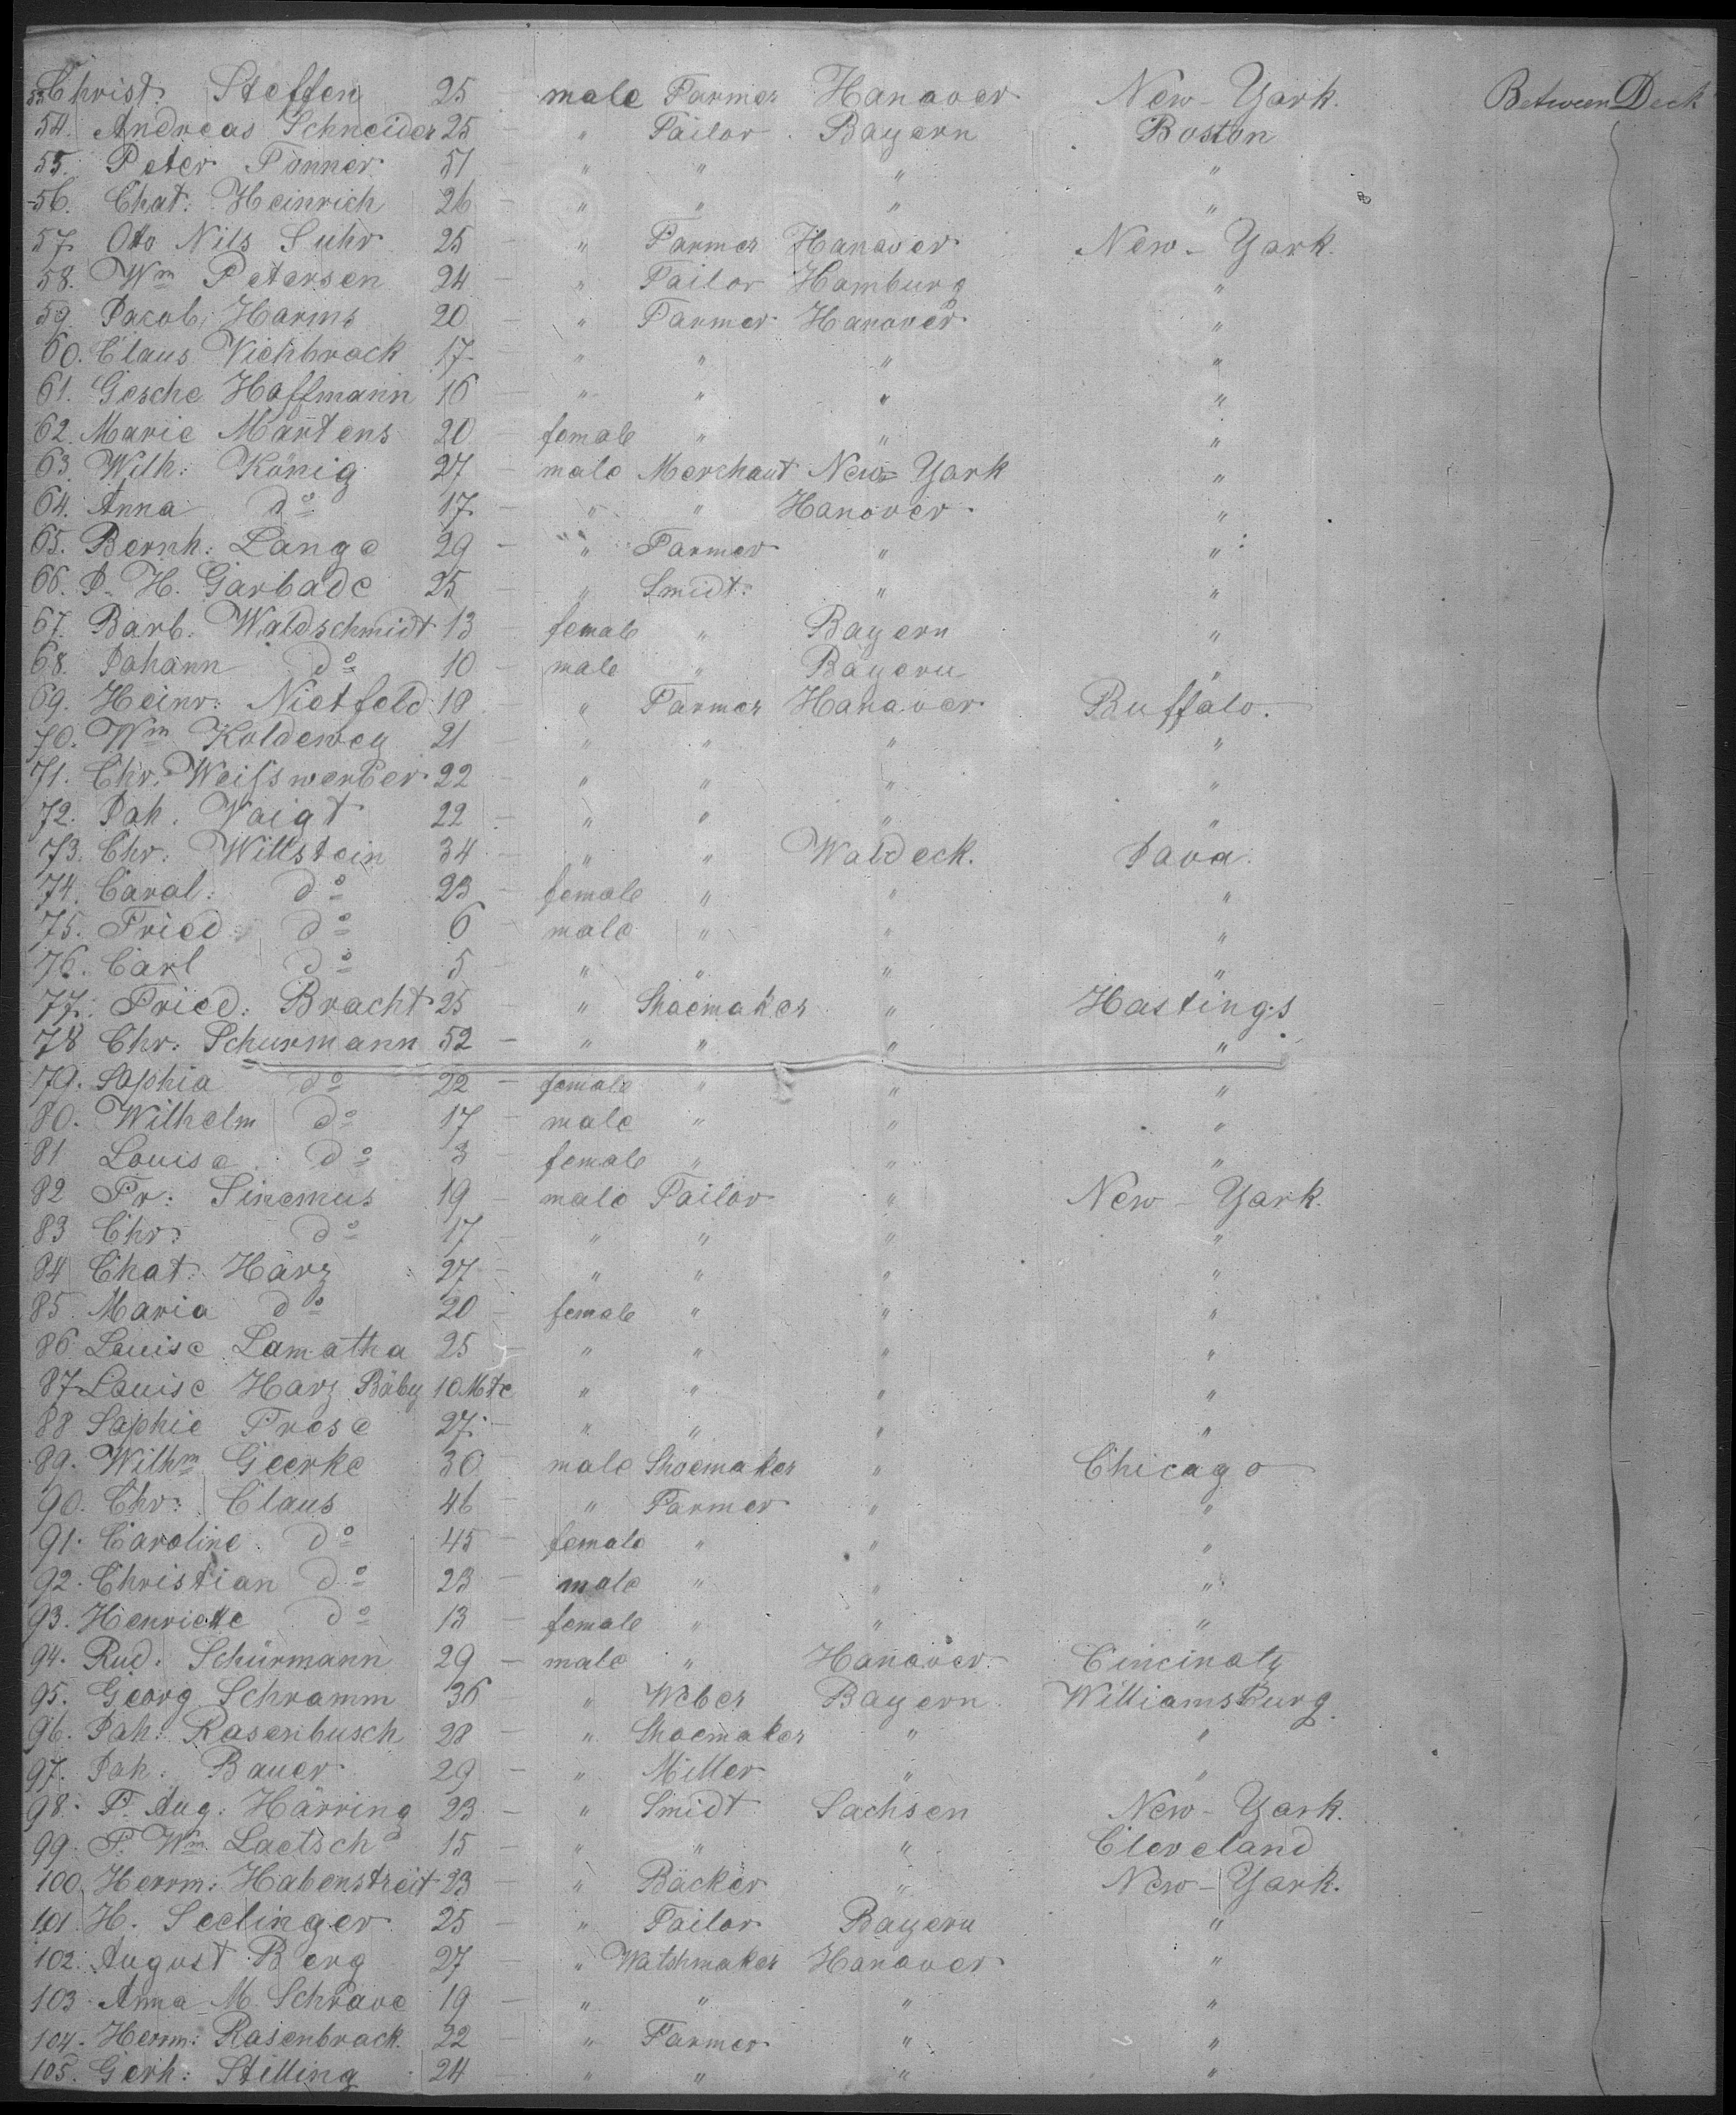 53 Christ. Steffen 25 male Farmer Hanover New-York. Between Deck
54. Andreas Schneider 25 - " Tailor. Bayern Boston
55. Peter 51 " " " "
56. Chat. Heinrich 26 - " " " "
57. Otto Nils Suhr 25 - " Farmer Hanover New-York.
58. Wm Petersen 24 - " Tailor Hamburg "
59. Jacob Harms 20 - " Farmer Hanover "
60. Claus Viehbrock 17 - " " " "
61. Gesche Hoffmann 16 - " " " "
62. Marie Martens 20 - female " " "
63. Wilh: König 27 - male Merchant New-York "
64. Anna do 17 - " " Hanover. "
65. Bernh: Lange 29 - " Farmer " "
66. J. H. Garbade 25 - " Smidt: " "
67. Barb. Waldschmidt 13 - female " Bayern "
68. Johann do 10 - male " Bayern "
69. Heinr: Nietfeld 18 - " Farmer Hanover Buffalo.
70. Wm Koldewey 21 - " " " "
71. Chr. 22 - " " " "
72. Joh. Voigt 22 - " " " "
73. Chr: Willstein 34 - " " Waldeck. Java.
74. Carol: do 23 - female " " "
75. Fried: do 6 - male " " "
76. Carl do 5 - " " " "
77. Fried: Bracht 25 - " Shoemaker " Hastings
78 Chr: Schurmann 52 - " " " "
79. Sophia do 22 - female " " "
80. Wilhelm do 17 - male " " "
81 Louise do 3 - female " " "
82 Fr: Sinemus 19 - male Tailor " New-York.
83 Chr: do 17 - " " " "
84 Chat: Härz 27 - " " " "
85. Maria do 20 - female " " "
86 Louise Lamatha 25 " " " "
87 Louise Harz Bäby 10 Mte " " " "
88 Sophie Frese 27 - " " " "
89. Wilhm Geerke 30 male Shoemaker " Chicago
90. Chr: Claus 46 - " Farmer " "
91. Caroline do 45 - female " " "
92. Christian do 23 - male " " "
93. Henriette do 13 - female " " "
94. Rud. Schürmann 29 - male " Hanover Cincinaty
95. Georg Schramm 36 " Weber Bayern Williamsburg.
96. Joh: Rosenbusch 28 - " Shoemaker " "
97. Joh: Bauer 29 - " Miller " "
98. F. Aug: Härring 23 - " Smidt Sachsen New-York.
99. F. Wm Laetsch 15 - " " " Cleveland
100. Herrm: Habenstreit 23 - " Bäcker " New-York.
101. H. Seelinger 25 - " Tailor Bayern "
102. August Berg 27 - " Watshmaker Hanover "
103. Anna M. Schrave 19 - " " " "
104. Herrm: Rosenbrock. 22 - " Farmer " "
105. Gerh: Stelling 24 - " " " "